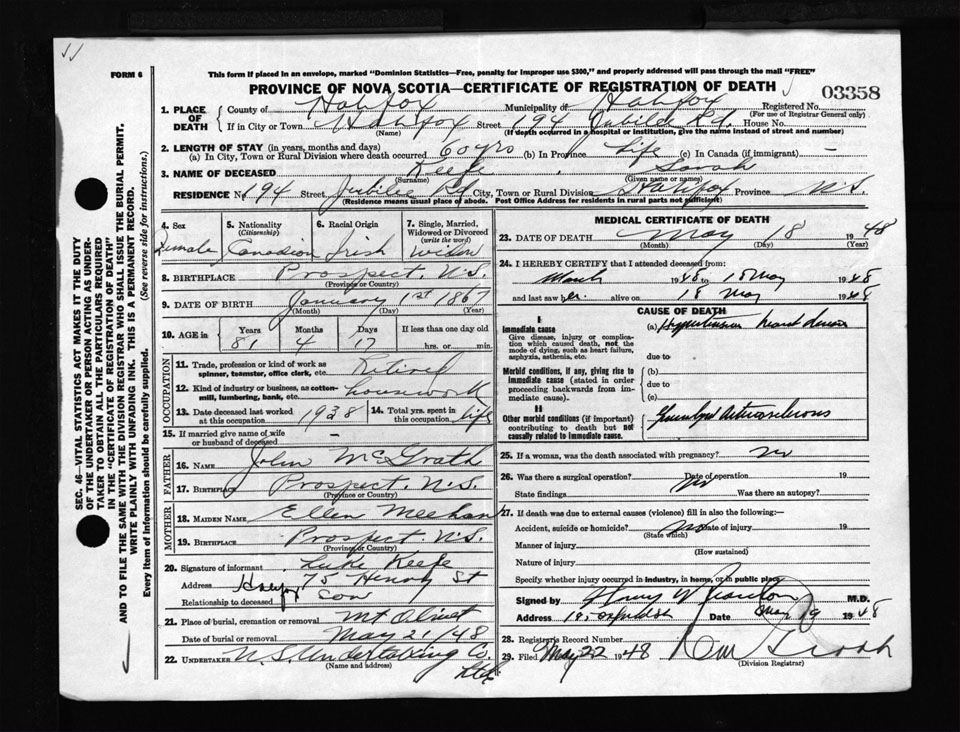 FORM 6
This form if placed in an envelope, marked "Dominion Statistics—Free, penalty for improper use $300," and properly addressed will pass through the mail "FREE"
PROVINCE OF NOVA SCOTIA—CERTIFICATE OF REGISTRATION OF DEATH
03358
1. PLACE OF DEATH
County of Halifax Municipality of Halifax Registered No.
(For use of Registrar General only)
If in City or Town Halifax Street 194 Jubilee Rd. House No.
(Name) (If death occurred in a hospital or institution, give the name instead of street and number)
2. LENGTH OF STAY (in years, months and days)
(a) In City, Town or Rural Division where death occurred 60 yrs (b) In Province Life (c) In Canada (if immigrant) —
3. NAME OF DECEASED Keefe Sarah
(Surname) (Given name or names)
RESIDENCE No. 194 Street Jubilee Rd. City, Town or Rural Division Halifax Province N.S.
(Residence means usual place of abode. Post Office Address for residents in rural parts not sufficient)
4. Sex Female
5. Nationality (Citizenship) Canadian
6. Racial Origin Irish
7. Single, Married, Widowed or Divorced (write the word) Widow
8. BIRTHPLACE Prospect, N.S.
(Province or Country)
9. DATE OF BIRTH January 1st 1867
(Month) (Day) (Year)
10. AGE in Years Months Days If less than one day old
81 4 17 hrs. or min.
OCCUPATION
11. Trade, profession or kind of work as spinner, teamster, office clerk, etc. Retired
12. Kind of industry or business, as cotton-mill, lumbering, bank, etc. housework
13. Date deceased last worked at this occupation 1938
14. Total yrs. spent in this occupation life
15. If married give name of wife or husband of deceased —
FATHER
16. NAME John McGrath
17. BIRTHPLACE Prospect, N.S.
(Province or Country)
MOTHER
18. MAIDEN NAME Ellen Meehan
19. BIRTHPLACE Prospect N.S.
(Province or Country)
20. Signature of informant Luke Keefe
Address 75 Henry St
Halifax
Relationship to deceased son
21. Place of burial, cremation or removal Mt Olivet
Date of burial or removal May 21/48
22. UNDERTAKER N.S. Undertaking Co. Ltd
(Name and address)
MEDICAL CERTIFICATE OF DEATH
23. DATE OF DEATH May 18 1948
(Month) (Day) (Year)
24. I HEREBY CERTIFY that I attended deceased from:
March 1948 to 18 May 1948
and last saw her alive on 18 May 1948
CAUSE OF DEATH
I
Immediate cause
Give disease, injury or complication which caused death, not the mode of dying, such as heart failure, asphyxia, asthenia, etc.
(a) Hypertension heart disease
due to
Morbid conditions, if any, giving rise to immediate cause (stated in order proceeding backwards from immediate cause).
(b)
due to
(c)
II
Other morbid conditions (if important) contributing to death but not causally related to immediate cause.
25. If a woman, was the death associated with pregnancy? no
26. Was there a surgical operation? no Date of operation 19
State findings Was there an autopsy?
27. If death was due to external causes (violence) fill in also the following:—
Accident, suicide or homicide? no Date of injury 19
(State which)
Manner of injury
(How sustained)
Nature of injury
Specify whether injury occurred in industry, in home, or in public place
Signed by Henry W M.D.
Address 19. Date May 19 1948
28. Registrar's Record Number
29. Filed May 22 1948
(Division Registrar)
SEC. 46—VITAL STATISTICS ACT MAKES IT THE DUTY
OF THE UNDERTAKER OR PERSON ACTING AS UNDERTAKER
TO OBTAIN ALL THE PARTICULARS REQUIRED
IN THE "CERTIFICATE OF REGISTRATION OF DEATH"
AND TO FILE THE SAME WITH THE DIVISION REGISTRAR WHO SHALL ISSUE THE BURIAL PERMIT.
WRITE PLAINLY WITH UNFADING INK. THIS IS A PERMANENT RECORD.
Every item of information should be carefully supplied. (See reverse side for instructions.)